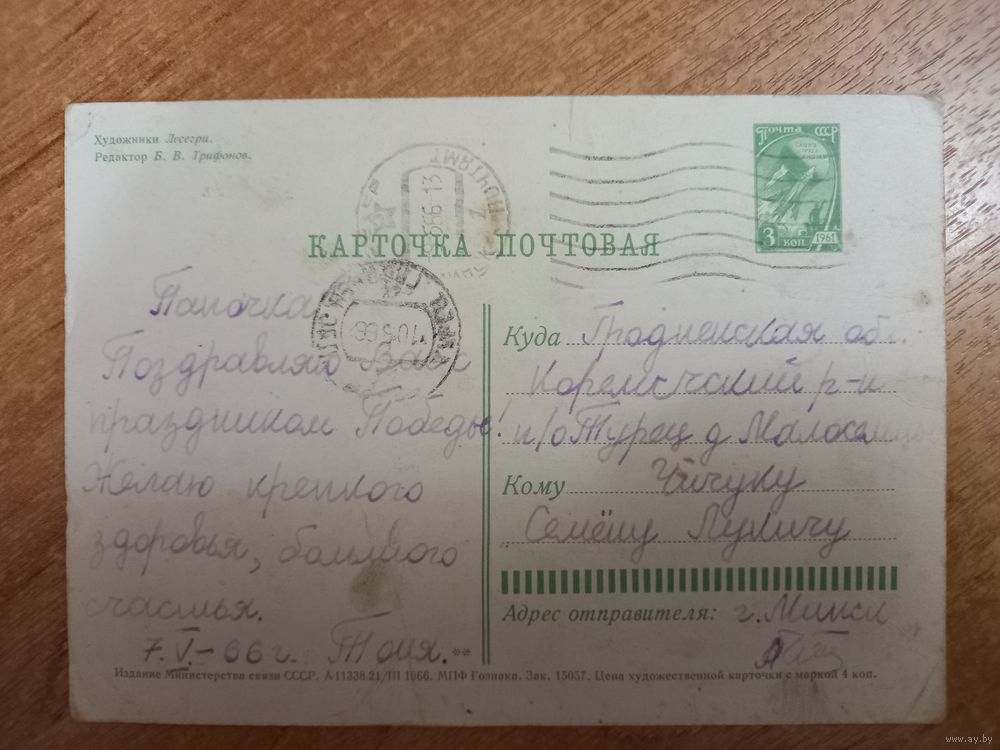 Художники Лесегри.
Редактор Б. В. Трифонов.
Почта СССР
3 КОП. 1961
ПОЧТАМТ
КАРТОЧКА ПОЧТОВАЯ
Папочка
Поздравляю Вас с
праздником Победы!
Желаю крепкого
здоровья, большого
счастья.
7.V.-66 г. Тоня.
**
10 5 66
Куда Гродненская обл.
Кореличский р-н
п/о Турец д
Кому Чичуку
Семёну Лукичу
Адрес отправителя: г. Минск
Издание Министерства связи СССР. А-11338 21/III 1966. МПФ Гознака. Зак. 15057. Цена художественной карточки с маркой 4 коп.
www.ay.by